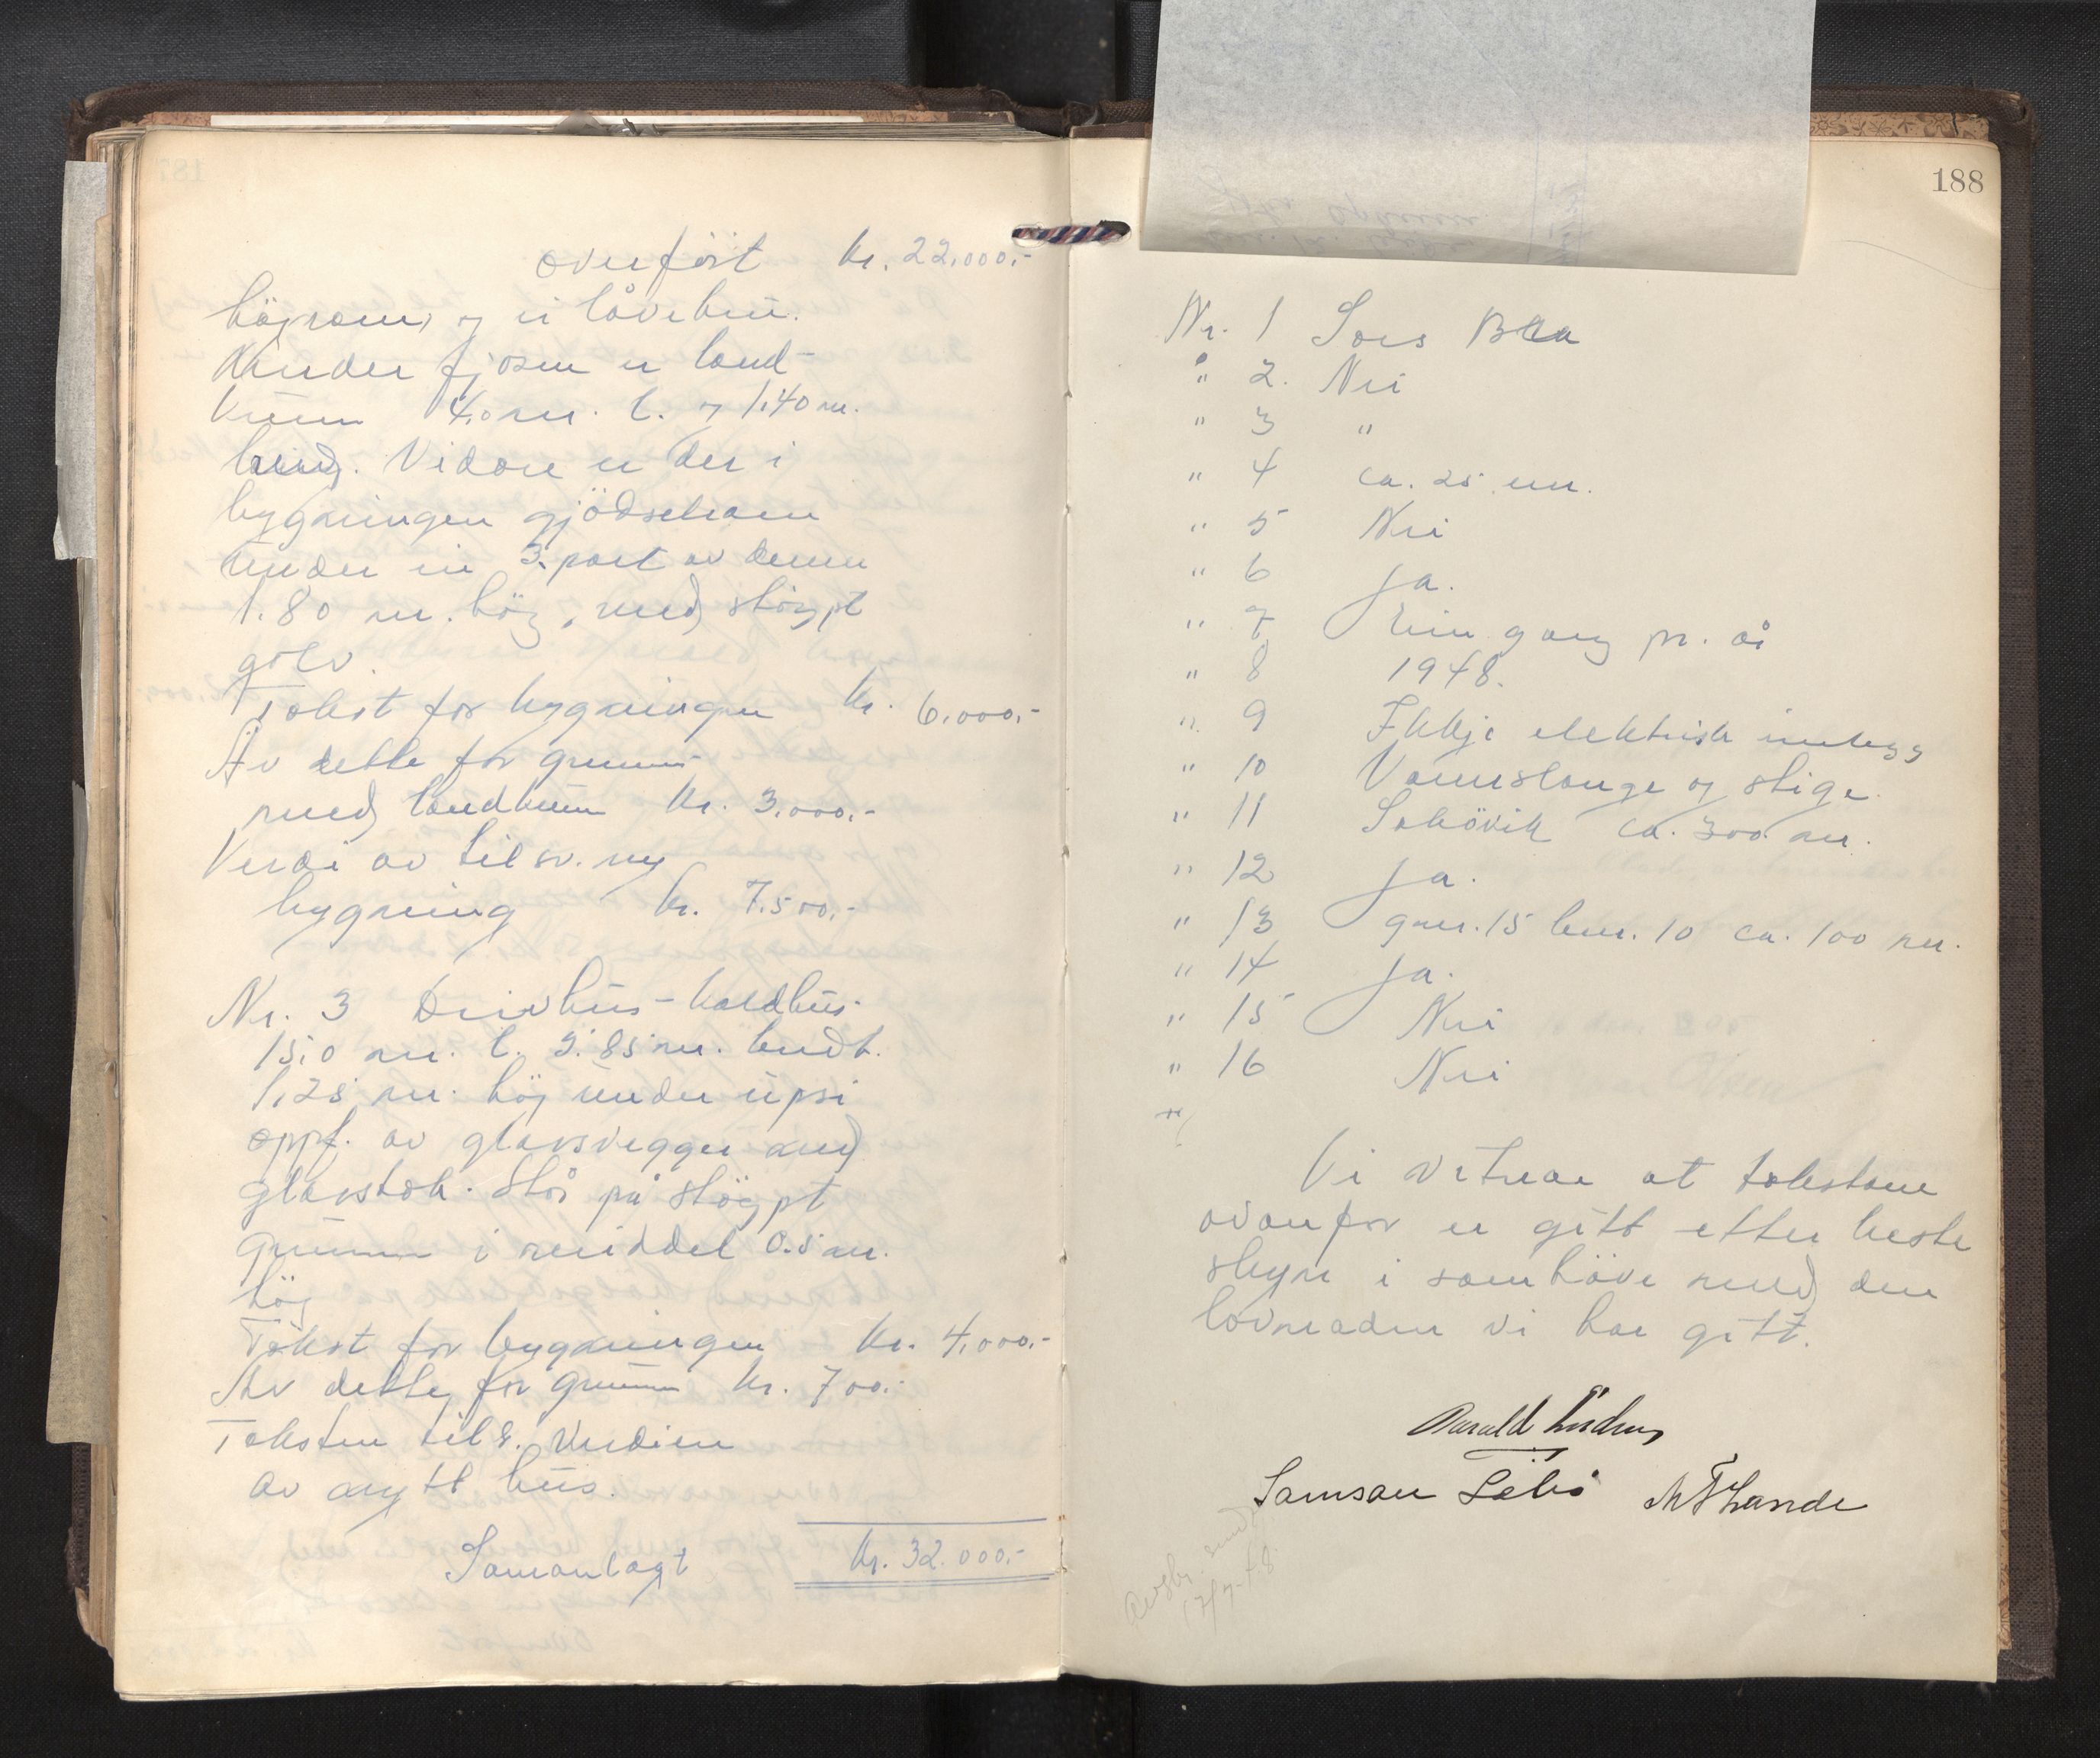 overført kr. 22.000,-
høyrom, og ei låvebru.
Under fjosen er land-
kum 4,0 m. l. og 1,40 m.
breid. Vidare er der i
bygningen gjødselrom
under ein 3. part av denne
1.80 m. høg, med støypt
golv.
Takst for bygningen kr. 6.000,-
Av dette for grunn
med landkum kr. 3.000,-
Verdi av tilsv. ny
bygning kr. 7.500,-
Nr. 3 Drivhus - kaldhus.
15,0 m. l. 3.85 m. breidt.
1,25 m. høg under upsi
oppf. av glasvegger med
glastak. Står på støypt
grunn i middel 0.5 m.
høg
Takst for bygningen kr. 4.000,-
Av dette for grunn kr. 700.-
Taksten tils. verdien
av nytt hus.
Samanlagt kr. 32.000,-
188
Nr. 1 Sers Bra
" 2. Nei
" 3 "
" 4 ca. 25 m.
" 5 Nei
" 6 Ja.
" 7 Ein gang pr. år
" 8 1948.
" 9 Ikkje elektrisk innlegg
" 10 Vannslange og stige.
" 11 ca. 300 m.
" 12 Ja.
" 13 gnr. 15 bnr. 10 ca. 100 m.
" 14 Ja.
" 15 Nei
" 16 Nei
Vi vitnar at takstane
ovanfor er gitt etter beste
skyn i samhøve med den
lovnaden vi har gitt.
Harald
Samson Søbø M T Lande
Avskr. sendt
17/7-48.